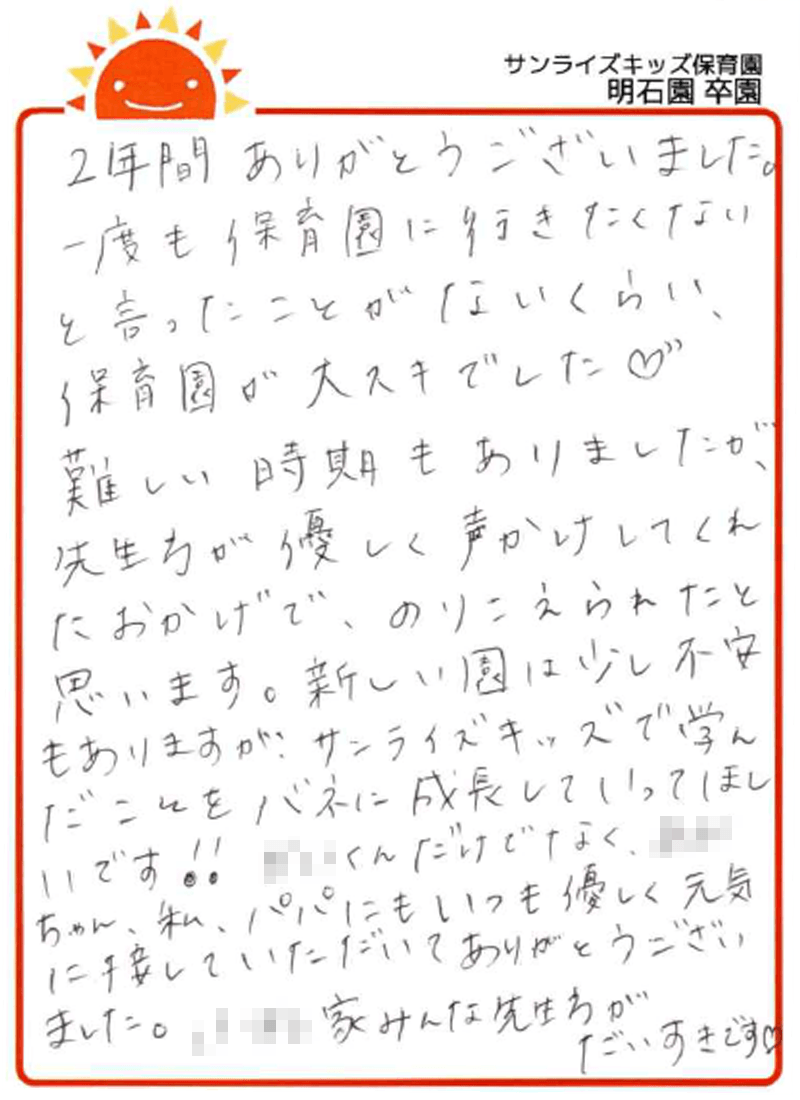 サンライズキッズ保育園
明石園 卒園
2年間 ありがとうございました。
一度も保育園に行きたくない
と言ったことがないくらい、
保育園が大スキでした♡
難しい時期もありましたが、
先生方が優しく声かけしてくれ
たおかげで、のりこえられたと
思います。新しい園は少し不安
もありますが、サンライズキッズで学ん
だことをバネに成長していってほし
いです!!くんだけでなく、
ちゃん、私、パパにもいつも優しく元気
に接していただいてありがとうござい
ました。家みんな先生方が
だいすきです♡